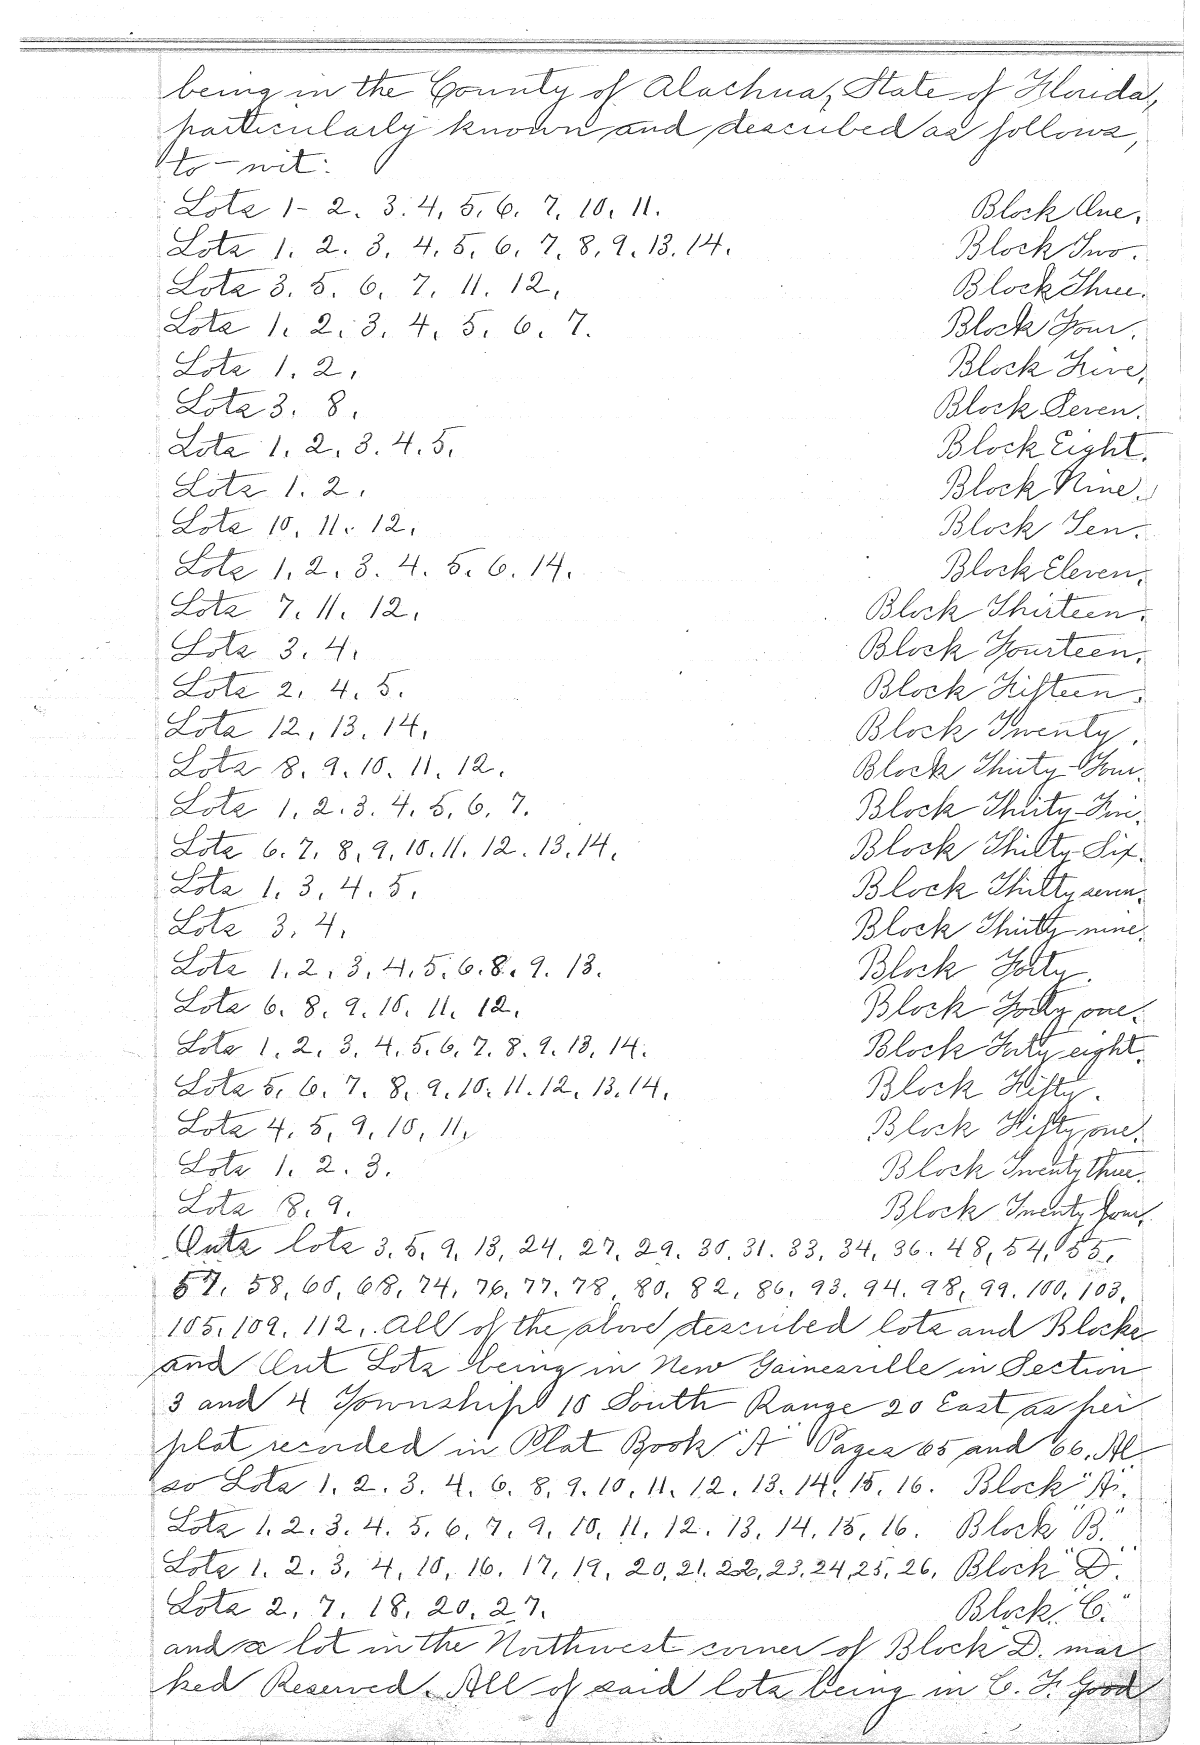 being in the County of Alachua, State of Florida,
particularly known and described as follows,
to-wit:
Lots 1- 2. 3. 4, 5, 6. 7, 10, 11. Block One.
Lots 1, 2. 3, 4, 5, 6, 7, 8, 9, 13. 14. Block Two.
Lots 3. 5. 6, 7, 11. 12, Block Three.
Lots 1. 2. 3, 4, 5, 6. 7. Block Four.
Lots 1. 2, Block Five,
Lots 3. 8, Block Seven.
Lots 1. 2, 3. 4. 5, Block Eight.
Lots 1. 2, Block Nine.
Lots 10, 11. 12, Block Ten.
Lots 1, 2, 3. 4. 5. 6. 14. Block Eleven.
Lots 7. 11. 12, Block Thirteen.
Lots 3. 4, Block Fourteen.
Lots 2, 4. 5. Block Fifteen.
Lots 12, 13. 14, Block Twenty.
Lots 8. 9. 10. 11. 12. Block Thirty-Four.
Lots 1, 2. 3. 4. 5, 6, 7. Block Thirty-Five.
Lots 6. 7. 8, 9, 10. 11. 12. 13. 14. Block Thirty-Six.
Lots 1. 3, 4. 5. Block Thirty seven.
Lots 3. 4. Block Thirty nine.
Lots 1. 2, 3, 4, 5, 6. 8. 9. 13. Block Forty.
Lots 6. 8. 9. 10. 11. 12. Block Forty one.
Lots 1, 2, 3, 4, 5. 6, 7. 8. 9. 13, 14. Block Forty eight.
Lots 5, 6. 7. 8, 9, 10. 11. 12, 13. 14. Block Fifty.
Lots 4, 5, 9, 10, 11, Block Fifty one.
Lots 1. 2. 3. Block Twenty three.
Lots 8. 9. Block Twenty four.
Outs lots 3, 5, 9, 13, 24, 27, 29. 30. 31. 33, 34, 36. 48, 54, 55,
57. 58, 60, 68, 74, 76, 77. 78, 80, 82, 86, 93. 94. 98, 99. 100, 103,
105, 109, 112, All of the above described lots and Blocks
and Out Lots being in New Gainesville in Section
3 and 4 Township 10 South Range 20 East as per
plat recorded in Plat Book "A" Pages 65 and 66. Al
so Lots 1. 2. 3. 4. 6. 8. 9. 10, 11. 12. 13. 14. 15, 16. Block "A".
Lots 1. 2. 3. 4. 5, 6, 7, 9, 10, 11, 12. 13, 14, 15, 16. Block "B."
Lots 1, 2. 3, 4, 10, 16. 17, 19, 20, 21. 22, 23, 24, 25, 26, Block "D."
Lots 2, 7, 18, 20, 27. Block "C."
and a lot in the Northwest corner of Block D. mar
ked Reserved. All of said lots being in C. F. Good